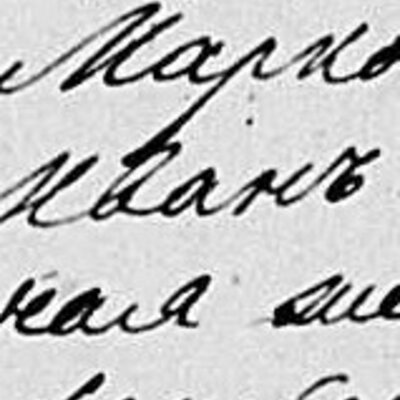 Марко
Иванъ
ная же